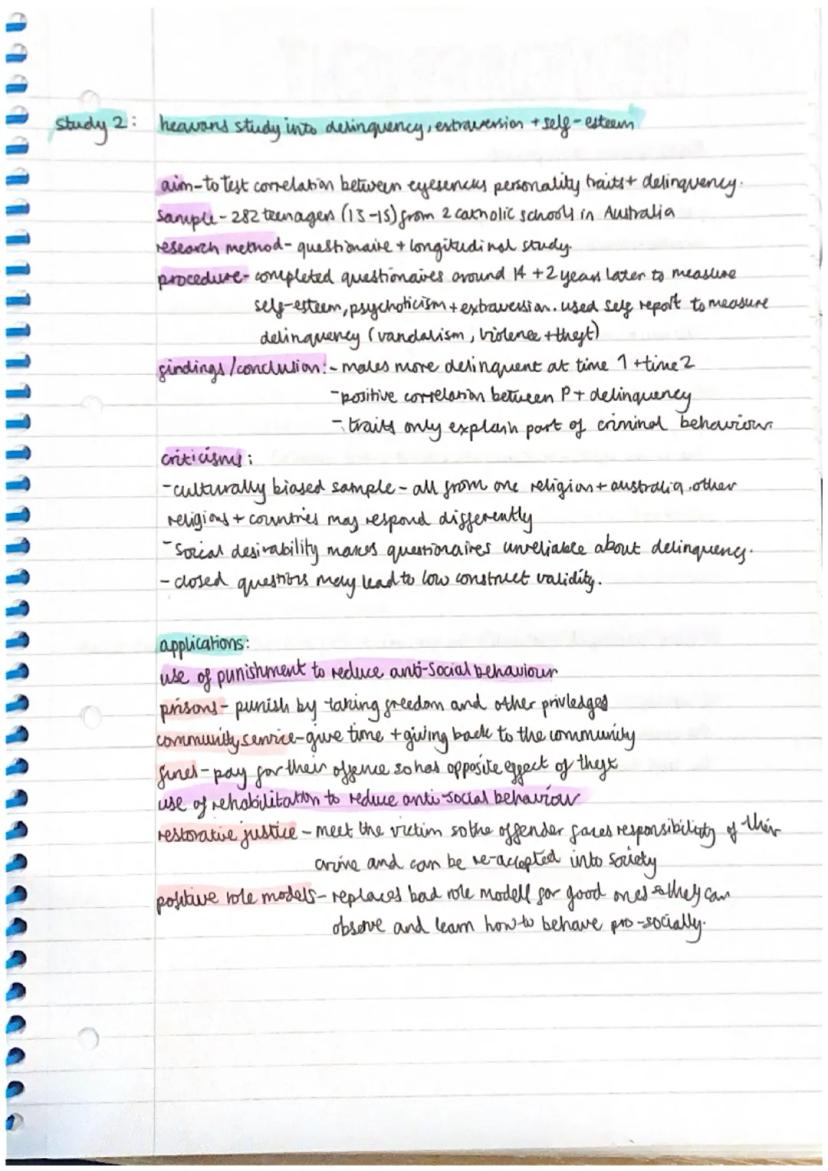 study 2: heavans study into delinquency, extraversion + self-esteem
aim-to test correlation between eyesencks personality traits + delinquency.
sample - 282 teenagers (13-15) from 2 catholic schools in Australia
research method - questionaire + longitudinal study.
procedure - completed questionaires around 14 + 2 years later to measure
self-esteem, psychoticism + extraversion. used self report to measure
delinquency (vandalism, violence + theft)
findings/conclusion: - males more delinquent at time 1 + time 2
- positive correlation between P + delinquency
- traits only explain part of criminal behaviour.
criticisms:
- culturally biased sample - all from one religion + australia. other
religions + countries may respond differently
- Social desirability makes questionaires unreliable about delinquency.
- closed questions may lead to low construct validity.
applications:
use of punishment to reduce anti-social behaviour
prisons - punish by taking freedom and other privledges
community service - give time + giving back to the community
fines - pay for their offence so has opposite effect of theft
use of rehabilitation to reduce anti-social behaviour
restorative justice - meet the victim so the offender faces responsibility of their
crime and can be re-accepted into society
positive role models - replaces bad role modell for good ones so they can
observe and learn how to behave pro-socially.